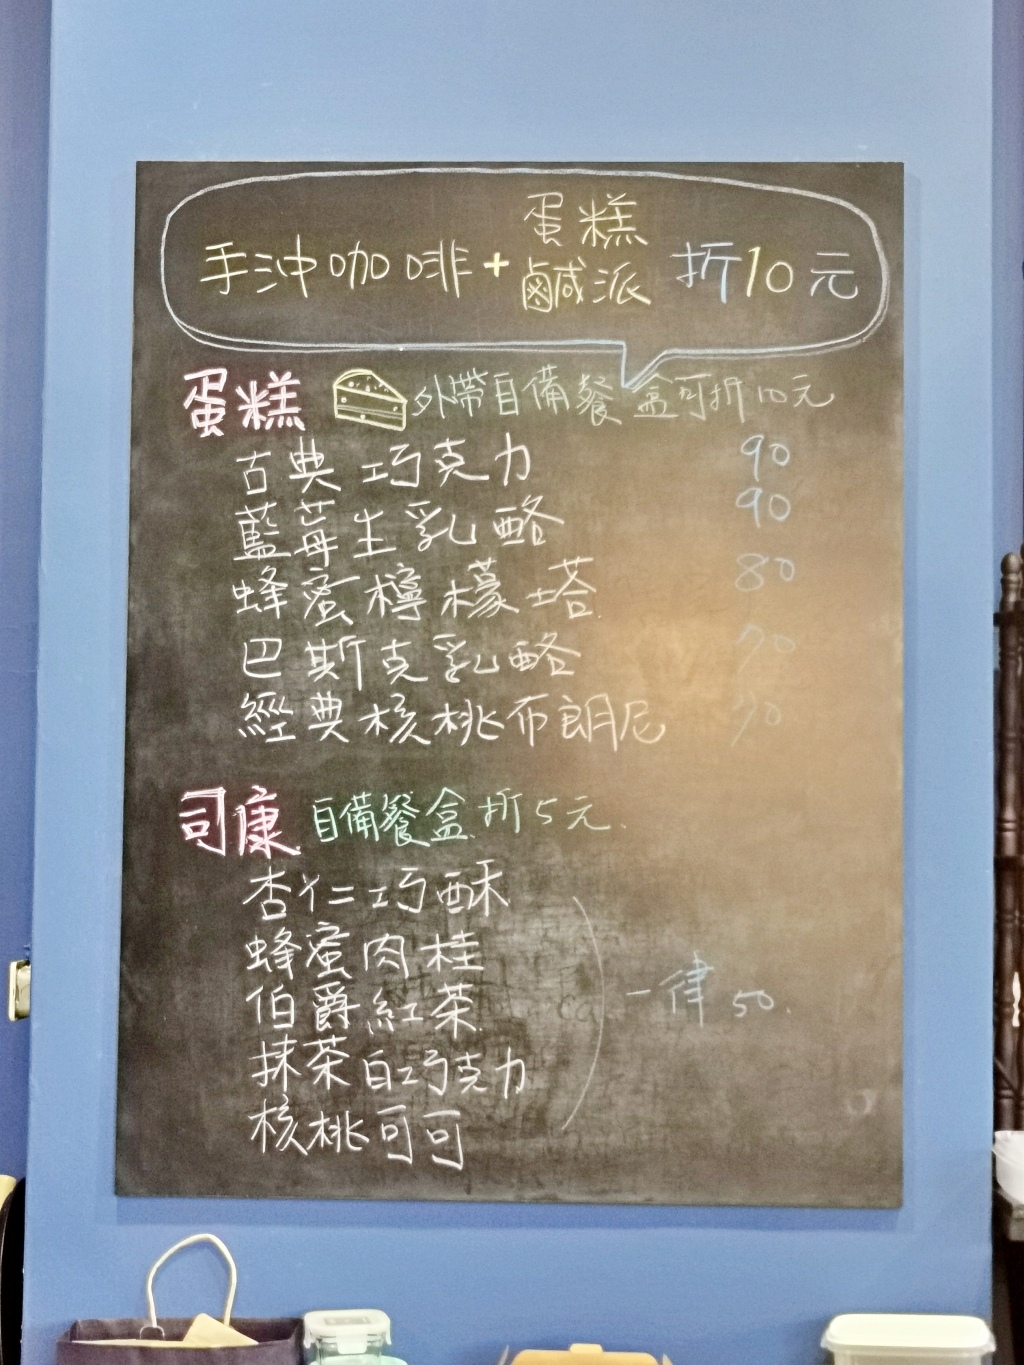 手沖咖啡+蛋糕鹹派 折10元
蛋糕 外帶自備餐盒可折10元
古典巧克力 90
藍莓生乳酪 90
蜂蜜檸檬塔 80
巴斯克乳酪 90
經典核桃布朗尼 90
司康 自備餐盒折5元.
杏仁巧酥
蜂蜜肉桂
伯爵紅茶
抹茶白巧克力
核桃可可
一律50.